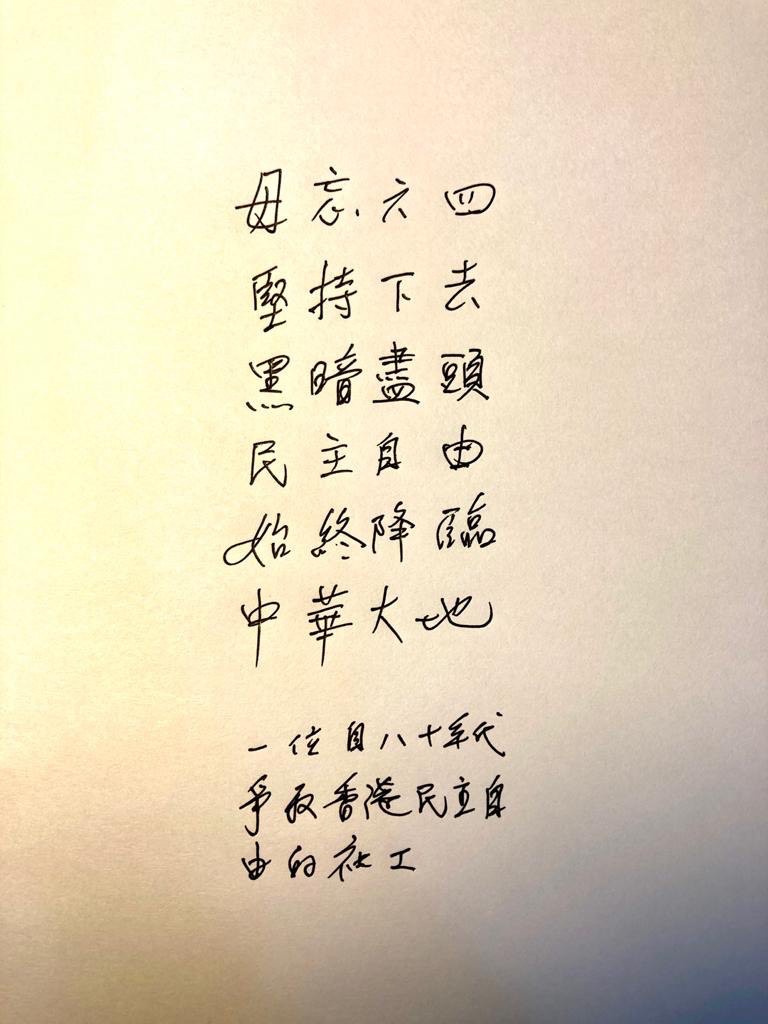 毋忘六四
堅持下去
黑暗盡頭
民主自由
始終降臨
中華大地
一位自八十年代
爭取香港民主自
由的社工